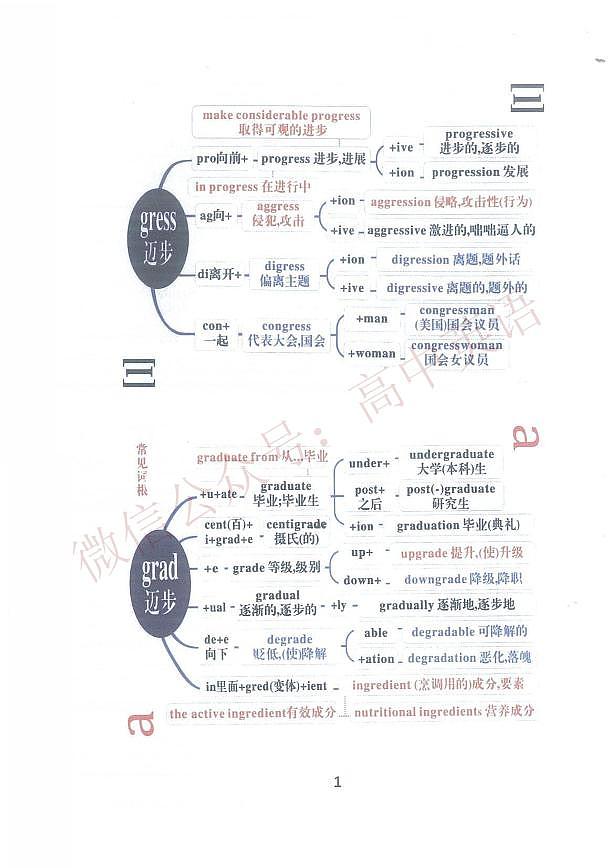 make considerable progress
取得可观的进步
pro向前+
progress 进步,进展
+ive
progressive
进步的,逐步的
+ion
progression 发展
in progress 在进行中
gress
迈步
ag向+
aggress
侵犯,攻击
+ion
aggression 侵略,攻击性(行为)
+ive
aggressive 激进的,咄咄逼人的
di离开+
digress
偏离主题
+ion
digression 离题,题外话
+ive
digressive 离题的,题外的
con+
一起
congress
代表大会,国会
+man
congressman
(美国)国会议员
+woman
congresswoman
国会女议员
微信公众号：高中英语
a
常见词根
graduate from 从...毕业
+u+ate
graduate
毕业;毕业生
under+
undergraduate
大学(本科)生
post+
之后
post(-)graduate
研究生
+ion
graduation 毕业(典礼)
cent(百)+
i+grad+e
centigrade
摄氏(的)
grad
迈步
+e
grade 等级,级别
up+
upgrade 提升,(使)升级
down+
downgrade 降级,降职
+ual
gradual
逐渐的,逐步的
+ly
gradually 逐渐地,逐步地
de+e
向下
degrade
贬低,(使)降解
able
degradable 可降解的
+ation
degradation 恶化,落魄
in里面+gred(变体)+ient
ingredient (烹调用的)成分,要素
a
the active ingredient有效成分
nutritional ingredients 营养成分
1